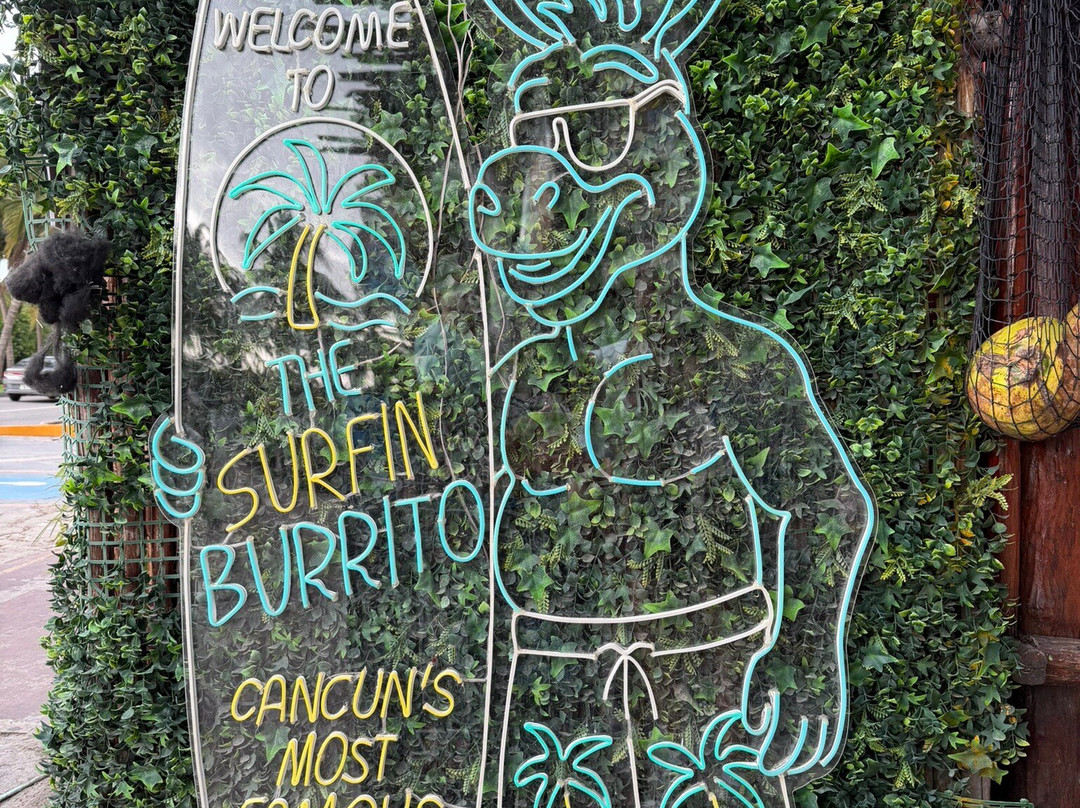 WELCOME
TO
THE
SURFIN
BURRITO
CANCUN'S
MOST
FAMOUS